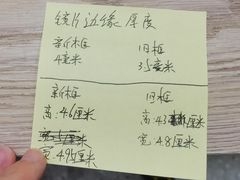 镜片边缘厚度
新框 旧框
4毫米 3.5毫米
新框 旧框
高:4.6厘米 高:4.3厘米
宽:4.95厘米 宽:4.8厘米